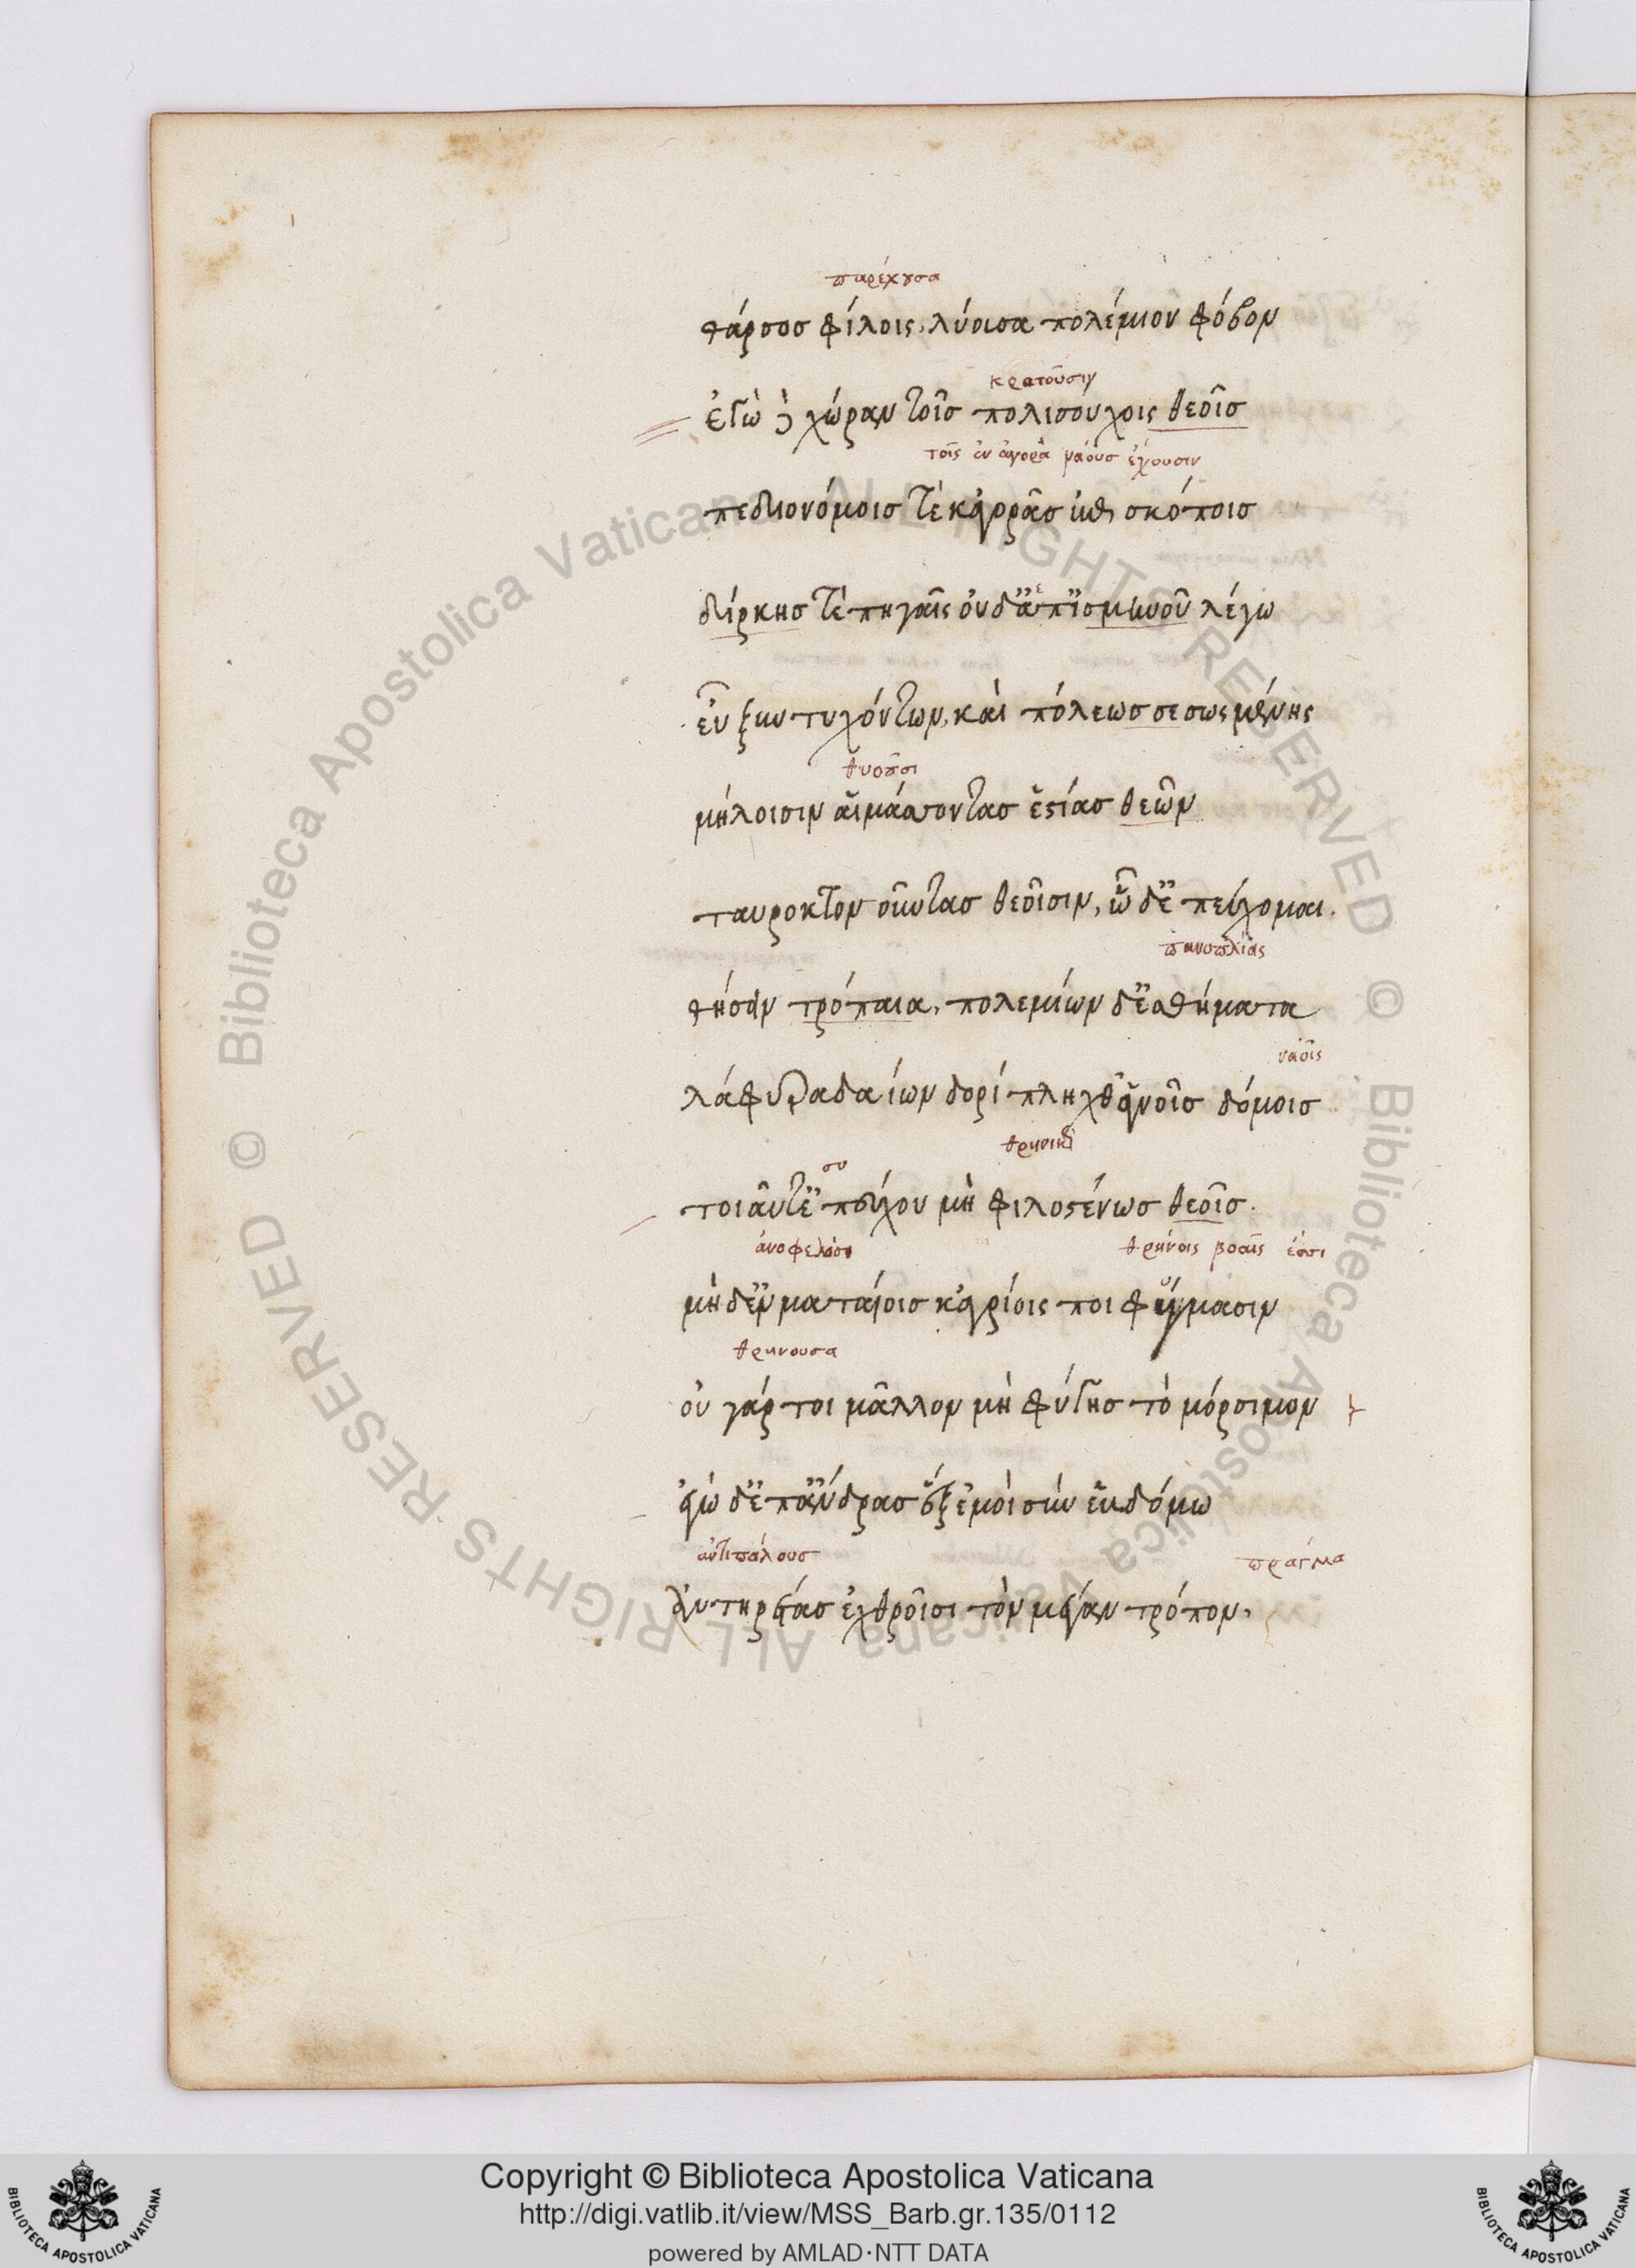 παρέχουσα
θάρσος φίλοις, λύουσα πολέμιον φόβον
κρατοῦσιν
ἐγὼ δὲ χώραν τοῖς πολισσούχοις θεοῖς
τοῖς ἐν ἀγορᾷ ναοὺς ἔχουσιν
πεδιονόμοις τὲ κἀγορᾶς ἐπισκόποις
δίρκης τὲ πηγαῖς οὐδ' ἀπ' ἰσμηνοῦ λέγω
εὖ ξυντυχόντων, καὶ πόλεως σεσωσμένης
θύουσι
μήλοισιν αἱμάσσοντας ἑστίας θεῶν
ταυροκτονοῦντας θεοῖσιν, ὧδ' ἐπεύχομαι.
πανοπλίας
θήσειν τρόπαια, πολεμίων δ' ἐσθήματα
ναοῖς
λάφυρα δαίων δορίπληχθ' ἁγνοῖς δόμοις
σὺ
τοιαῦτ' ἐπεύχου μὴ φιλοστόνως θεοῖς.
ἀνωφελέσι
θρήνοις βοαῖς
μὴδ' ἐν ματαίοις κἀγρίοις ποιφύγμασιν
θρηνοῦσα
οὐ γάρ τοι μᾶλλον μὴ φύγης τὸ μόρσιμον
ἐγὼ δ' ἐπ' ἄνδρας ἓξ ἐμοὶ σὺν ἑβδόμω
ἀντιπάλους
πράγμα
ἀντηρέτας ἐχθροῖσι τὸν μέγαν τρόπον,
Copyright © Biblioteca Apostolica Vaticana
http://digi.vatlib.it/view/MSS_Barb.gr.135/0112
powered by AMLAD·NTT DATA